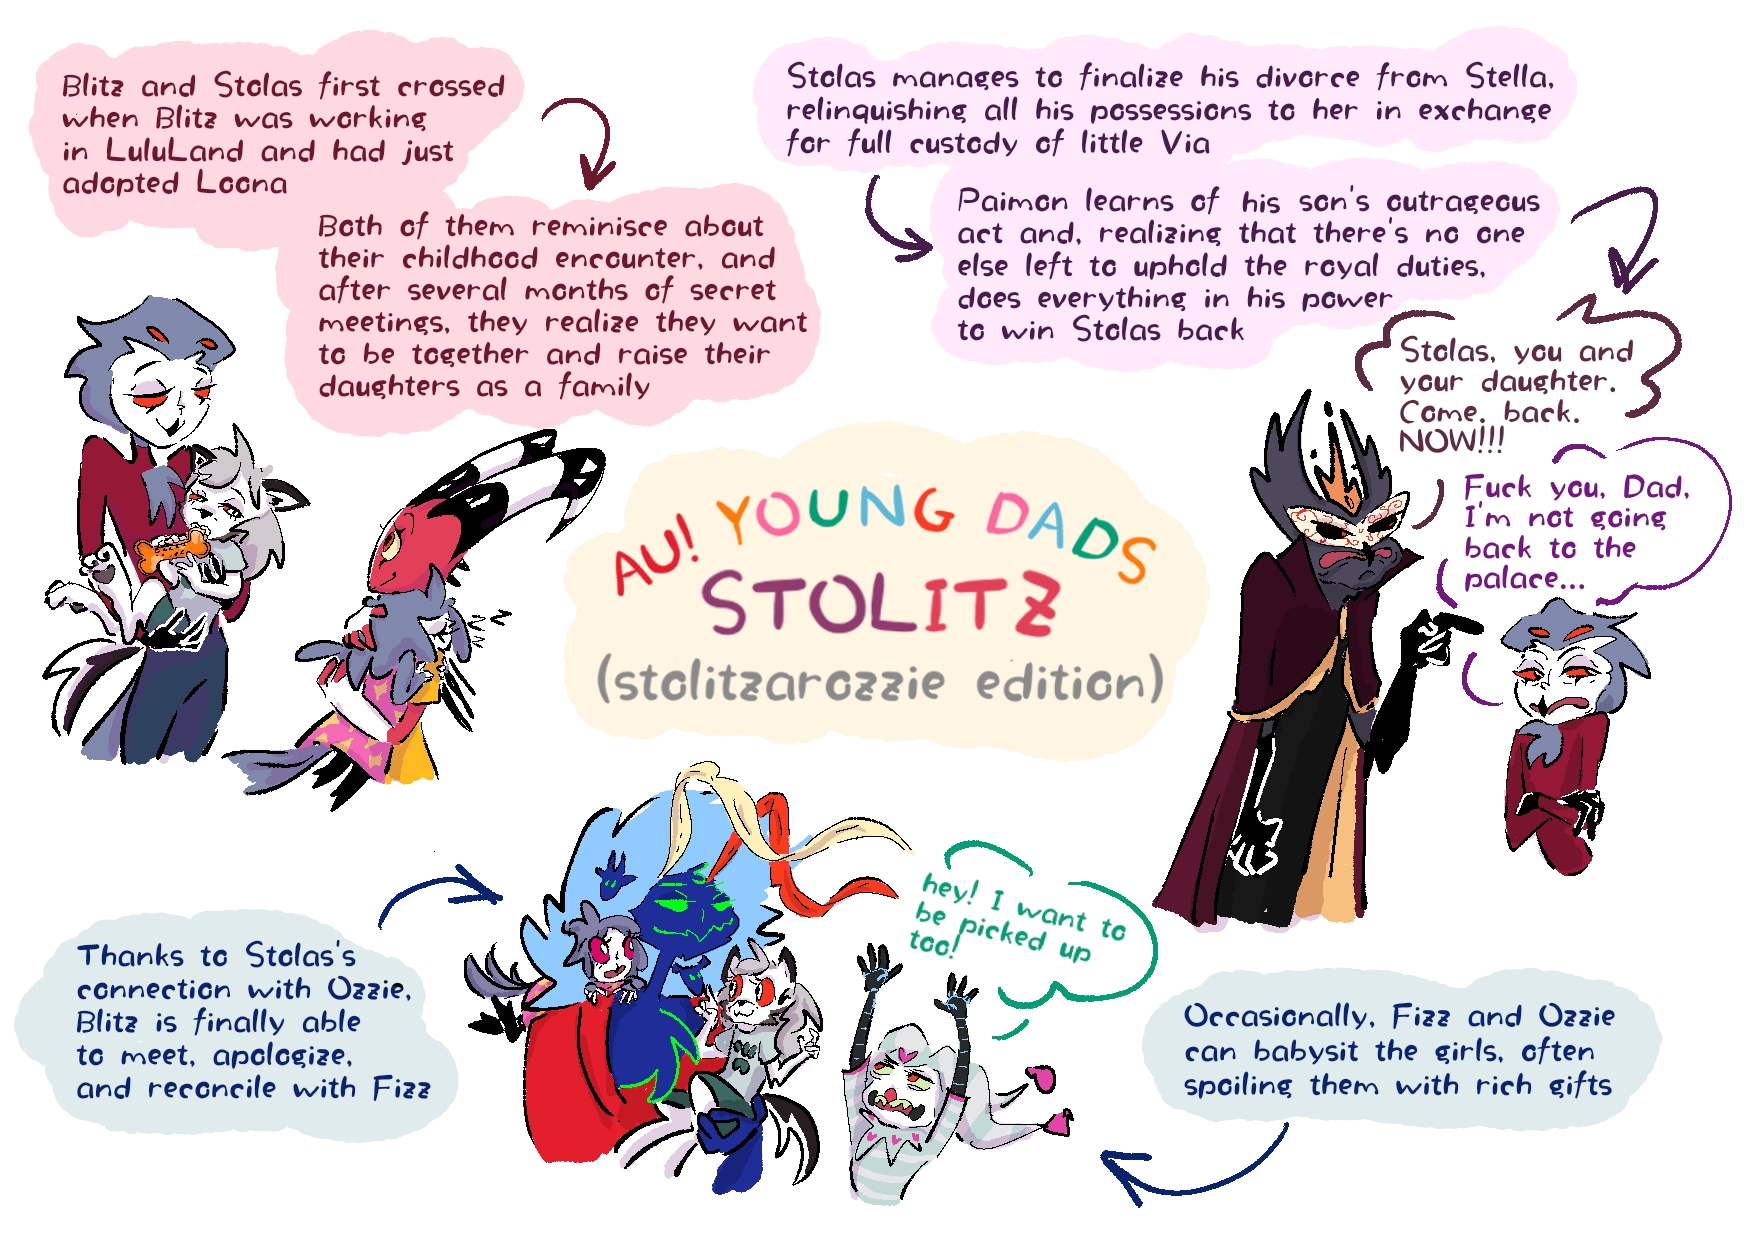 Blitz and Stolas first crossed
when Blitz was working
in LuluLand and had just
adopted Loona
Both of them reminisce about
their childhood encounter, and
after several months of secret
meetings, they realize they want
to be together and raise their
daughters as a family
Stolas manages to finalize his divorce from Stella,
relinquishing all his possessions to her in exchange
for full custody of little Via
Paimon learns of his son's outrageous
act and, realizing that there's no one
else left to uphold the royal duties,
does everything in his power
to win Stolas back
Stolas, you and
your daughter.
Come. back.
NOW!!!
Fuck you, Dad,
I'm not going
back to the
palace...
AU! YOUNG DADS
STOLITZ
(stolitzarozzie edition)
z z z
Thanks to Stolas's
connection with Ozzie,
Blitz is finally able
to meet, apologize,
and reconcile with Fizz
hey! I want to
be picked up
too!
Occasionally, Fizz and Ozzie
can babysit the girls, often
spoiling them with rich gifts